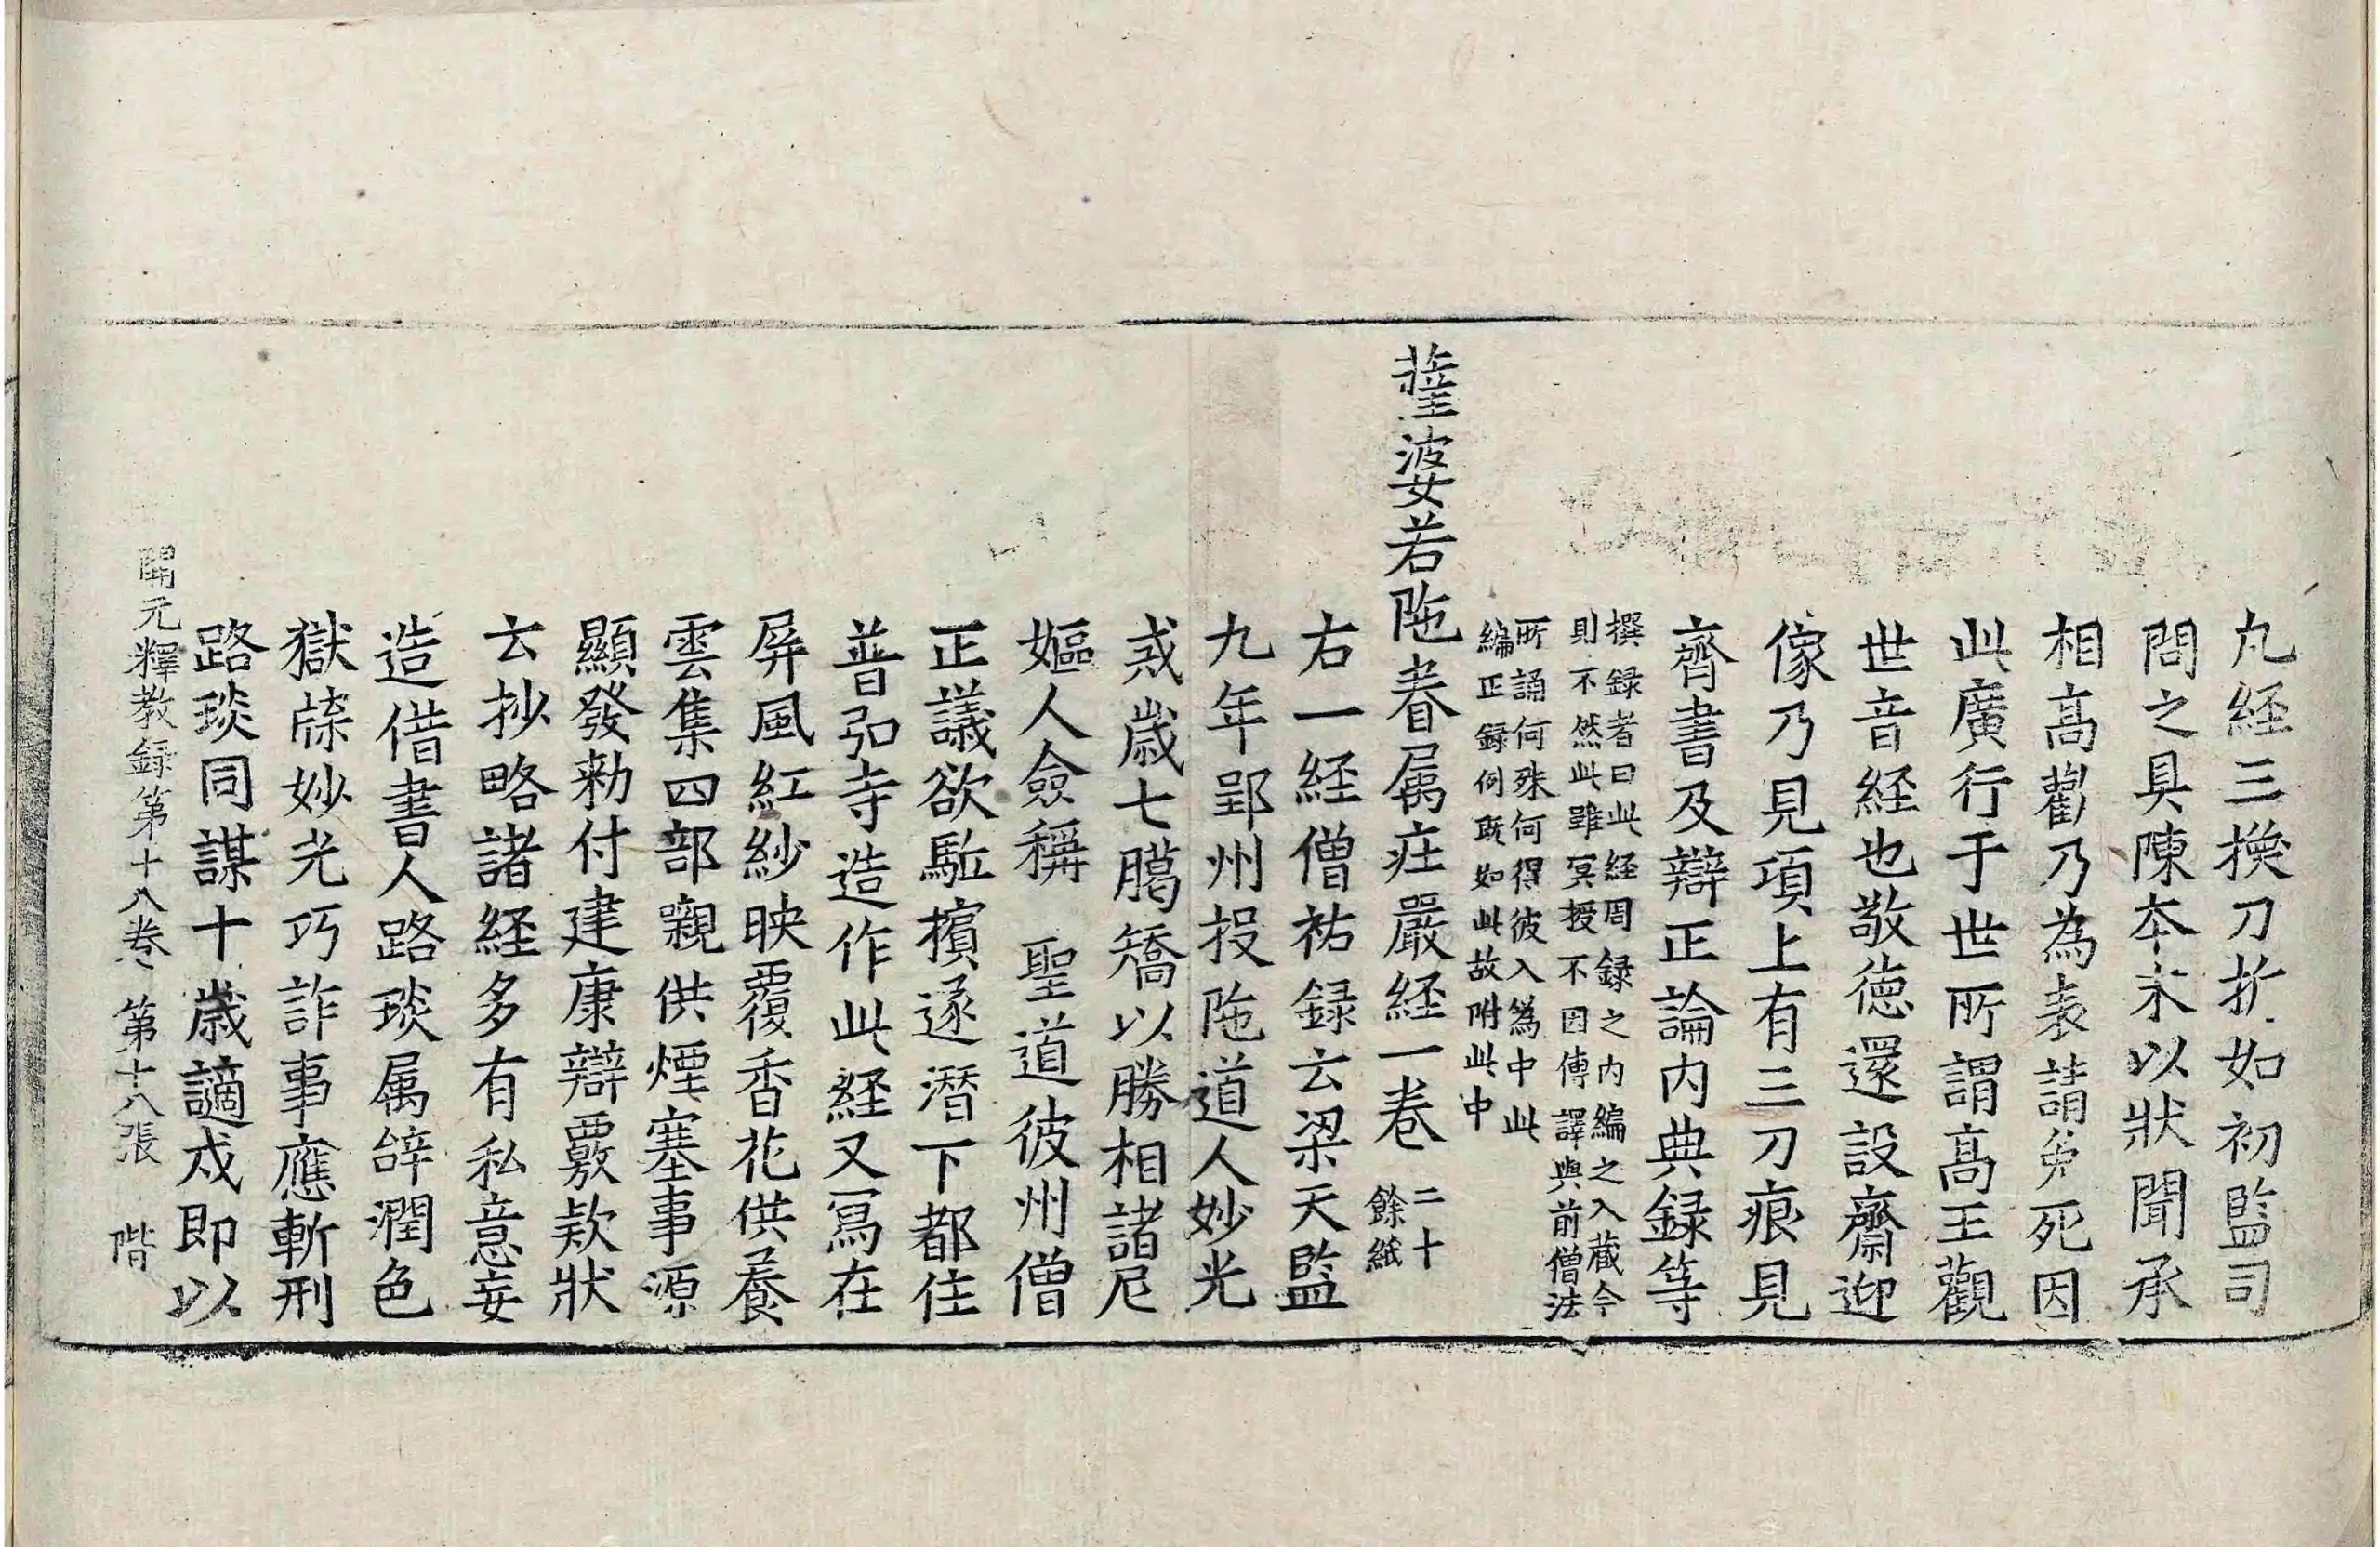 凢経三換刀折如初監司
問之具陳本末以狀聞承
相髙勸乃為表請免死因
此廣行于世所謂髙王觀
世音経也敬徳還設齋迎
像乃見項上有三刀痕見
齊書及辯正論内典録等
撰録者曰此経周録之内編之入蔵今
則不然此雖冥授不因傳譯與前僧法
所誦何殊何得彼入為中此
編正録例既如此故附此中
薩婆若陁眷属荘嚴経一巻
二十
餘紙
右一経僧祐録云梁天監
九年郢州投陁道人妙光
戒歳七臈矯以勝相諸尼
嫗人僉稱 聖道彼州僧
正議欲駈擯遂潜下都住
普弘寺造作此経又冩在
屏風紅紗映覆香花供養
雲集四部嚫供煙塞事源
顯發勑付建康辯覈欵狀
云抄略諸経多有私意妄
造借書人路琰属辝潤色
獄牒妙光巧詐事應斬刑
路琰同謀十歳謫戍即以
開元釋教録第十八巻 第十八張 階